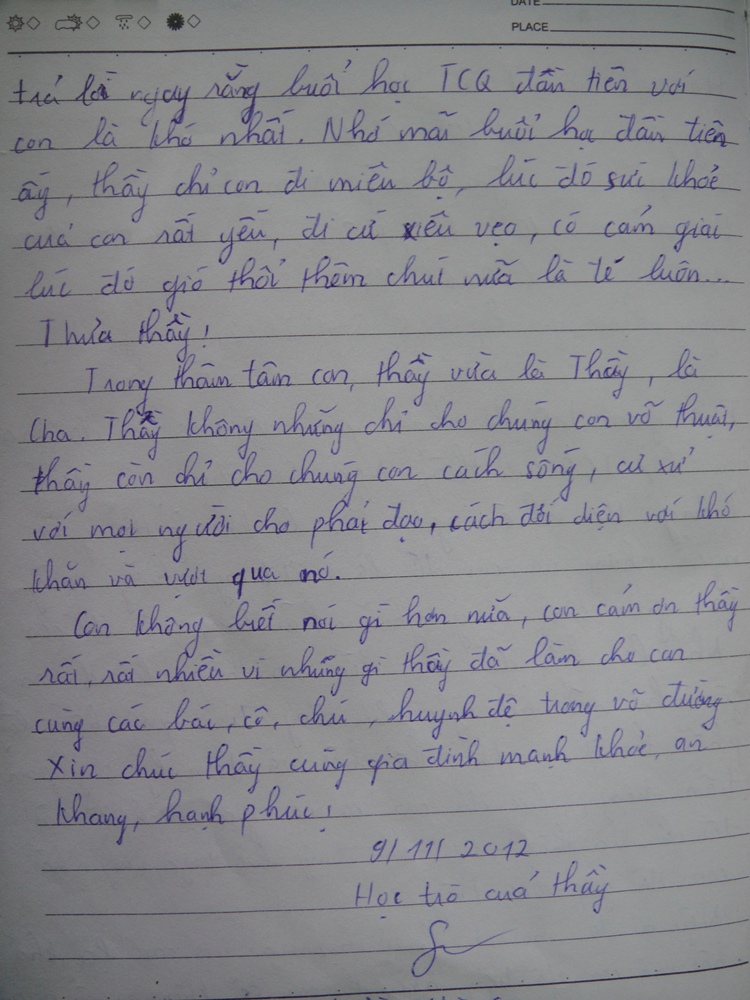 DATE
PLACE
trả lời ngay rằng buổi học TCQ đầu tiên với
con là khó nhất. Nhớ mãi buổi học đầu tiên
ấy, thầy chỉ con đi miêu bộ, lúc đó sức khỏe
của con rất yếu, đi cứ xiêu vẹo, có cảm giác
lúc đó gió thổi thêm chút nữa là té luôn...
Thưa thầy!
Trong thâm tâm con, thầy vừa là Thầy, là
Cha. Thầy không những chỉ cho chúng con võ thuật,
thầy còn chỉ cho chúng con cách sống, cư xử
với mọi người cho phải đạo, cách đối diện với khó
khăn và vượt qua nó.
Con không biết nói gì hơn nữa, con cám ơn thầy
rất, rất nhiều vì những gì thầy đã làm cho con
cùng các bác, cô, chú, huynh đệ trong võ đường
Xin chúc thầy cùng gia đình mạnh khỏe, an
khang, hạnh phúc!
9/11/2012
Học trò của thầy